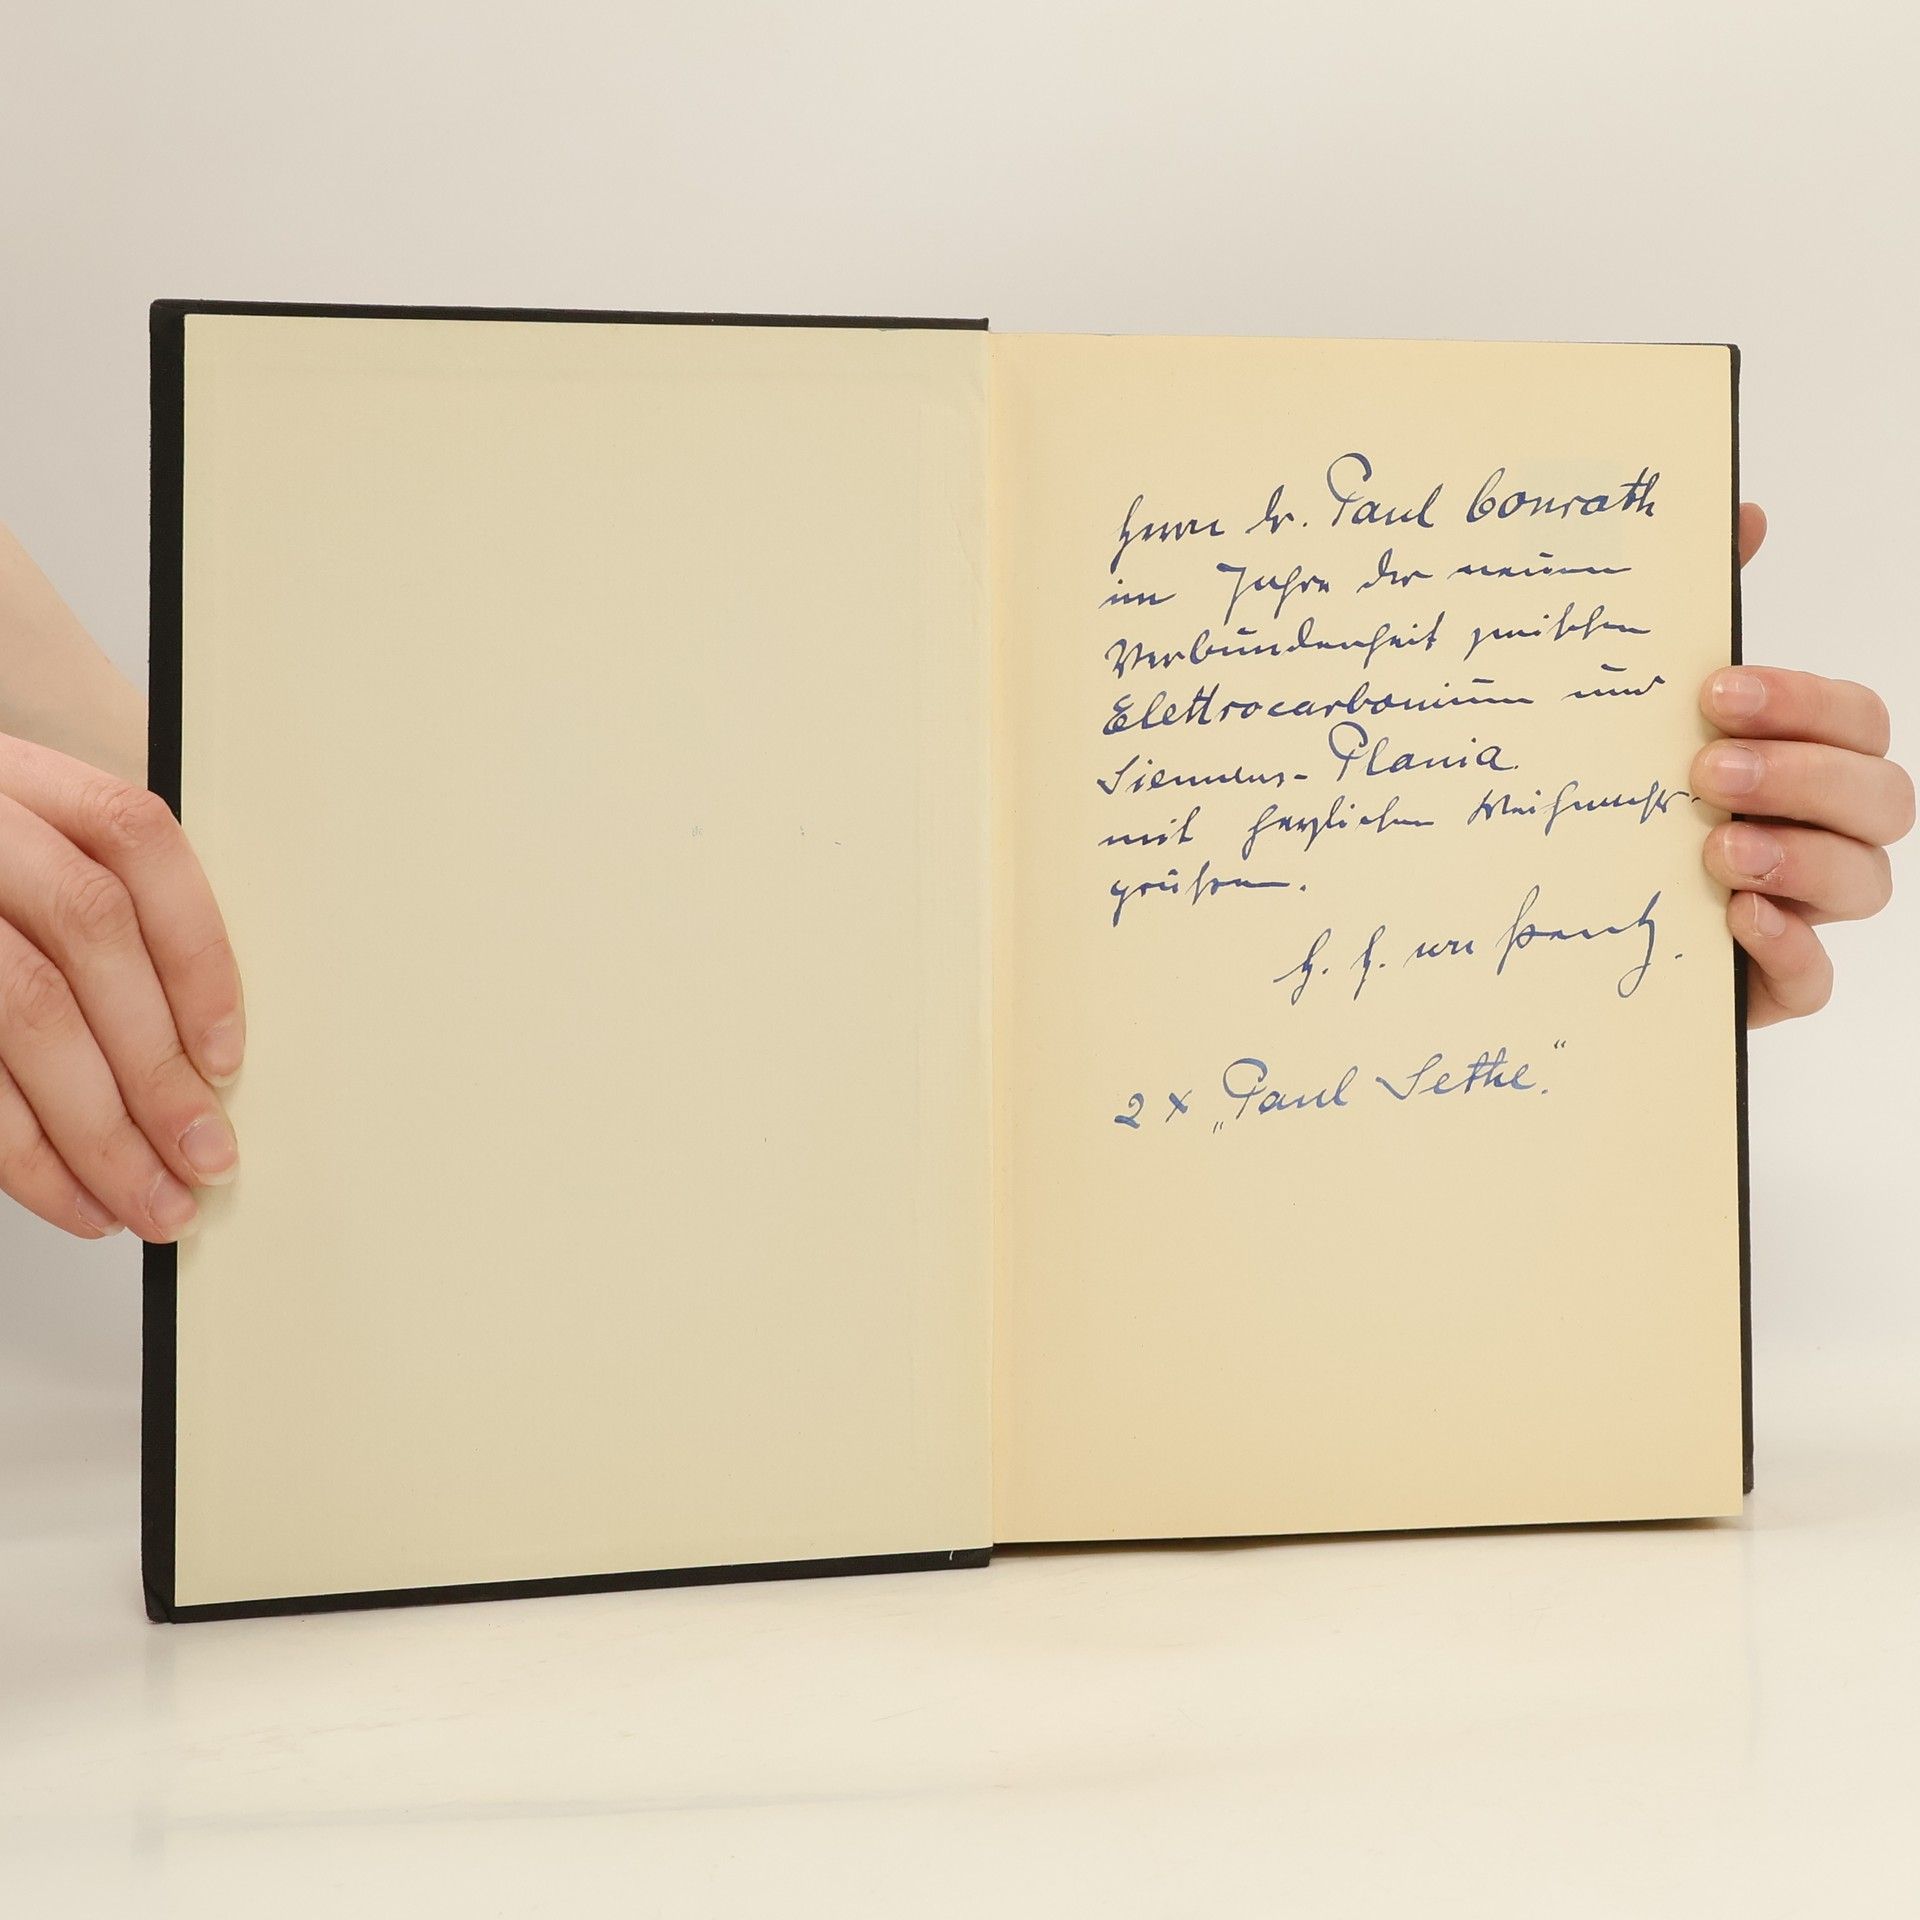 Herrn Dr. Paul Conrath
im Jahre der neuen
Verbundenheit zwischen
Elettrocarbonium und
Siemens-Plania
mit herzlichen Weihnachts-
grüßen.
H. H. von
2 x „Paul Sethe."